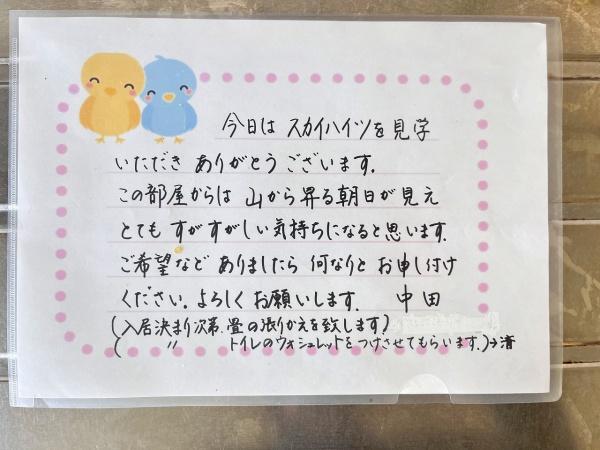 今日は スカイハイツを 見学
いただき ありがとうございます.
この部屋からは 山から昇る朝日が見え
とても すがすがしい気持ちになると思います.
ご希望など ありましたら 何なりと お申し付け
ください。よろしく お願いします. 中田
(入居決まり次第.畳の張りかえを致します)
( 〃 トイレのウォシュレットをつけさせてもらいます.)→済